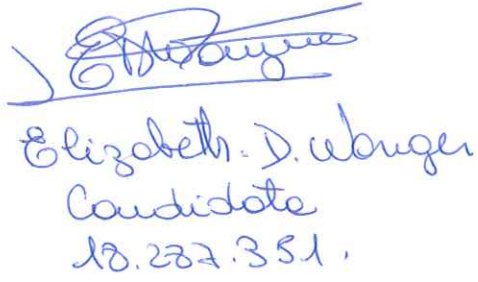 Elizabeth. D. Wanger
Candidata
18.287.351.